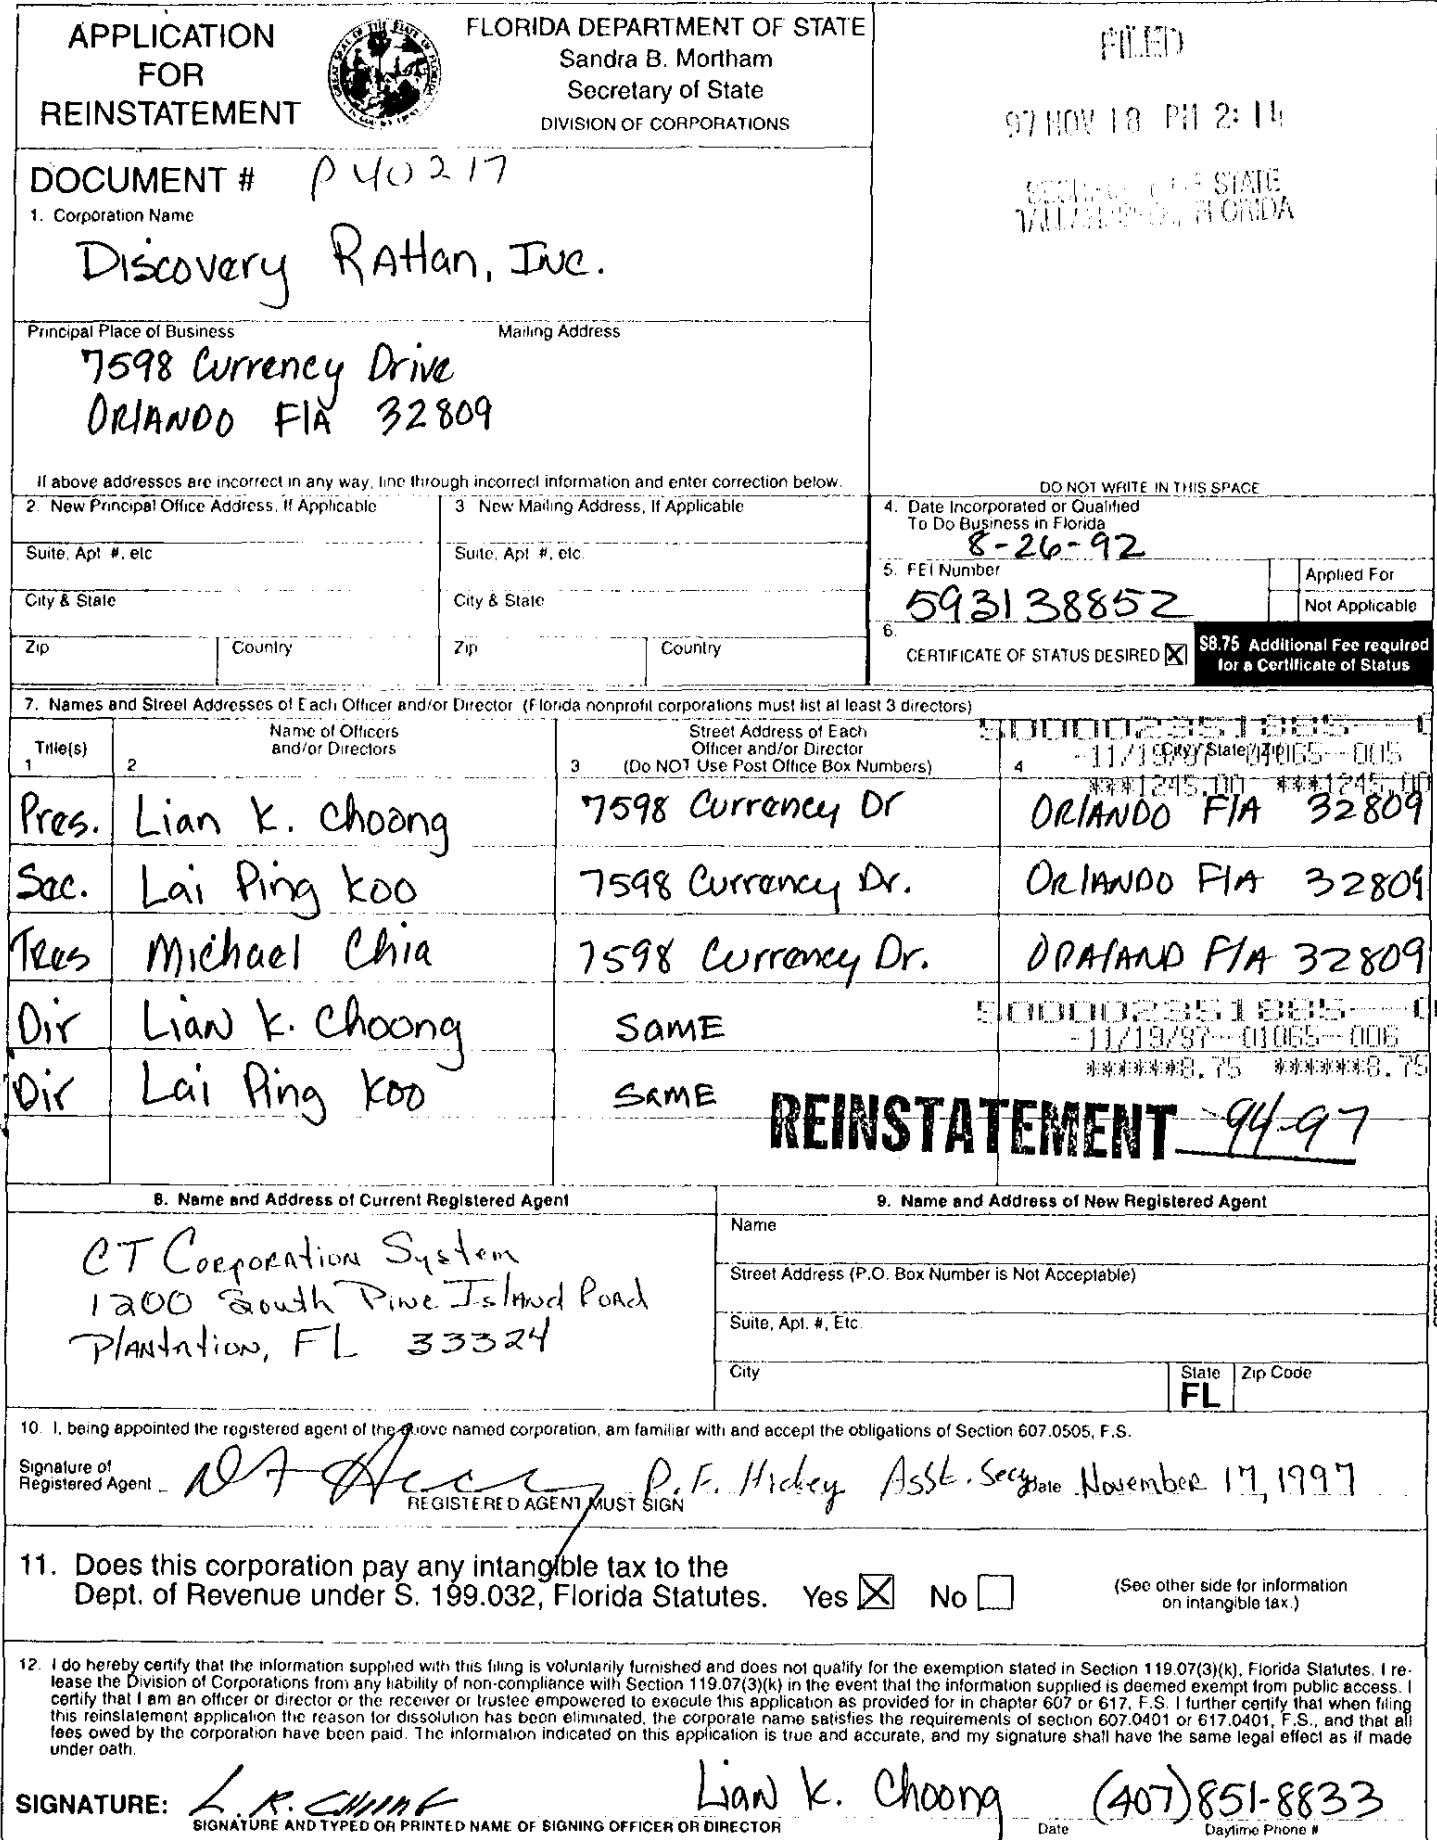 APPLICATION
FOR
REINSTATEMENT
FLORIDA DEPARTMENT OF STATE
Sandra B. Mortham
Secretary of State
DIVISION OF CORPORATIONS
FILED
97 NOV 18 PM 2:14
STATE
FLORIDA
DOCUMENT # P40217
1. Corporation Name
Discovery Rattan, Inc.
Principal Place of Business Mailing Address
7598 Currency Drive
ORlANDO FlA 32809
If above addresses are incorrect in any way, line through incorrect information and enter correction below.
DO NOT WRITE IN THIS SPACE
2. New Principal Office Address, If Applicable
3 New Mailing Address, If Applicable
4. Date Incorporated or Qualified
To Do Business in Florida
8-26-92
Suite, Apt #, etc
Suite, Apt #, etc.
5. FEI Number
593138852
Applied For
Not Applicable
City & State
City & State
Zip Country
Zip Country
6.
CERTIFICATE OF STATUS DESIRED X
$8.75 Additional Fee required
for a Certificate of Status
7. Names and Street Addresses of Each Officer and/or Director (Florida nonprofit corporations must list at least 3 directors)
Title(s)
1
Name of Officers
and/or Directors
2
Street Address of Each
Officer and/or Director
3 (Do NOT Use Post Office Box Numbers)
City / State / Zip
4
500002351885--
-11/19/97--01065--005
***1245.00 ***1245.00
Pres. Lian K. Choong 7598 Currency Dr ORlANDO FlA 32809
Sec. Lai Ping Koo 7598 Currency Dr. ORlANDO FlA 32809
Tres Michael Chia 7598 Currency Dr. FlA 32809
Dir Lian K. Choong SAME
500002351885--
-11/19/97--01065--006
******8.75 ******8.75
Dir Lai Ping Koo SAME
REINSTATEMENT 94-97
8. Name and Address of Current Registered Agent
CT Corporation System
1200 South Pine Island Road
Plantation, FL 33324
9. Name and Address of New Registered Agent
Name
Street Address (P.O. Box Number is Not Acceptable)
Suite, Apt. #, Etc.
City
State
FL
Zip Code
10. I, being appointed the registered agent of the above named corporation, am familiar with and accept the obligations of Section 607.0505, F.S.
Signature of
Registered Agent D. F. Hickey Asst. Secy Date November 17, 1997
REGISTERED AGENT MUST SIGN
11. Does this corporation pay any intangible tax to the
Dept. of Revenue under S. 199.032, Florida Statutes. Yes X No
(See other side for information
on intangible tax.)
12. I do hereby certify that the information supplied with this filing is voluntarily furnished and does not qualify for the exemption stated in Section 119.07(3)(k), Florida Statutes. I re-
lease the Division of Corporations from any liability of non-compliance with Section 119.07(3)(k) in the event that the information supplied is deemed exempt from public access. I
certify that I am an officer or director or the receiver or trustee empowered to execute this application as provided for in chapter 607 or 617, F.S. I further certify that when filing
this reinstatement application the reason for dissolution has been eliminated, the corporate name satisfies the requirements of section 607.0401 or 617.0401, F.S., and that all
fees owed by the corporation have been paid. The information indicated on this application is true and accurate, and my signature shall have the same legal effect as if made
under oath.
SIGNATURE: L. K. CHOONG Lian K. Choong (407)851-8833
SIGNATURE AND TYPED OR PRINTED NAME OF SIGNING OFFICER OR DIRECTOR Date Daytime Phone #